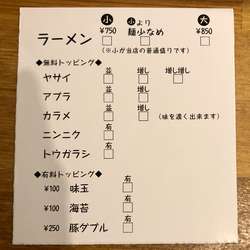 小 小より 大
ラーメン ¥750 麺少なめ ¥850
(※小が当店の普通盛りです)
◆無料トッピング◆
ヤサイ 並 増し 増し増し
アブラ 並 増し
カラメ 並 増し (味を濃く出来ます)
ニンニク 有
トウガラシ 有
◆有料トッピング◆
¥100 味玉 有
¥100 海苔 有
¥250 豚ダブル 有